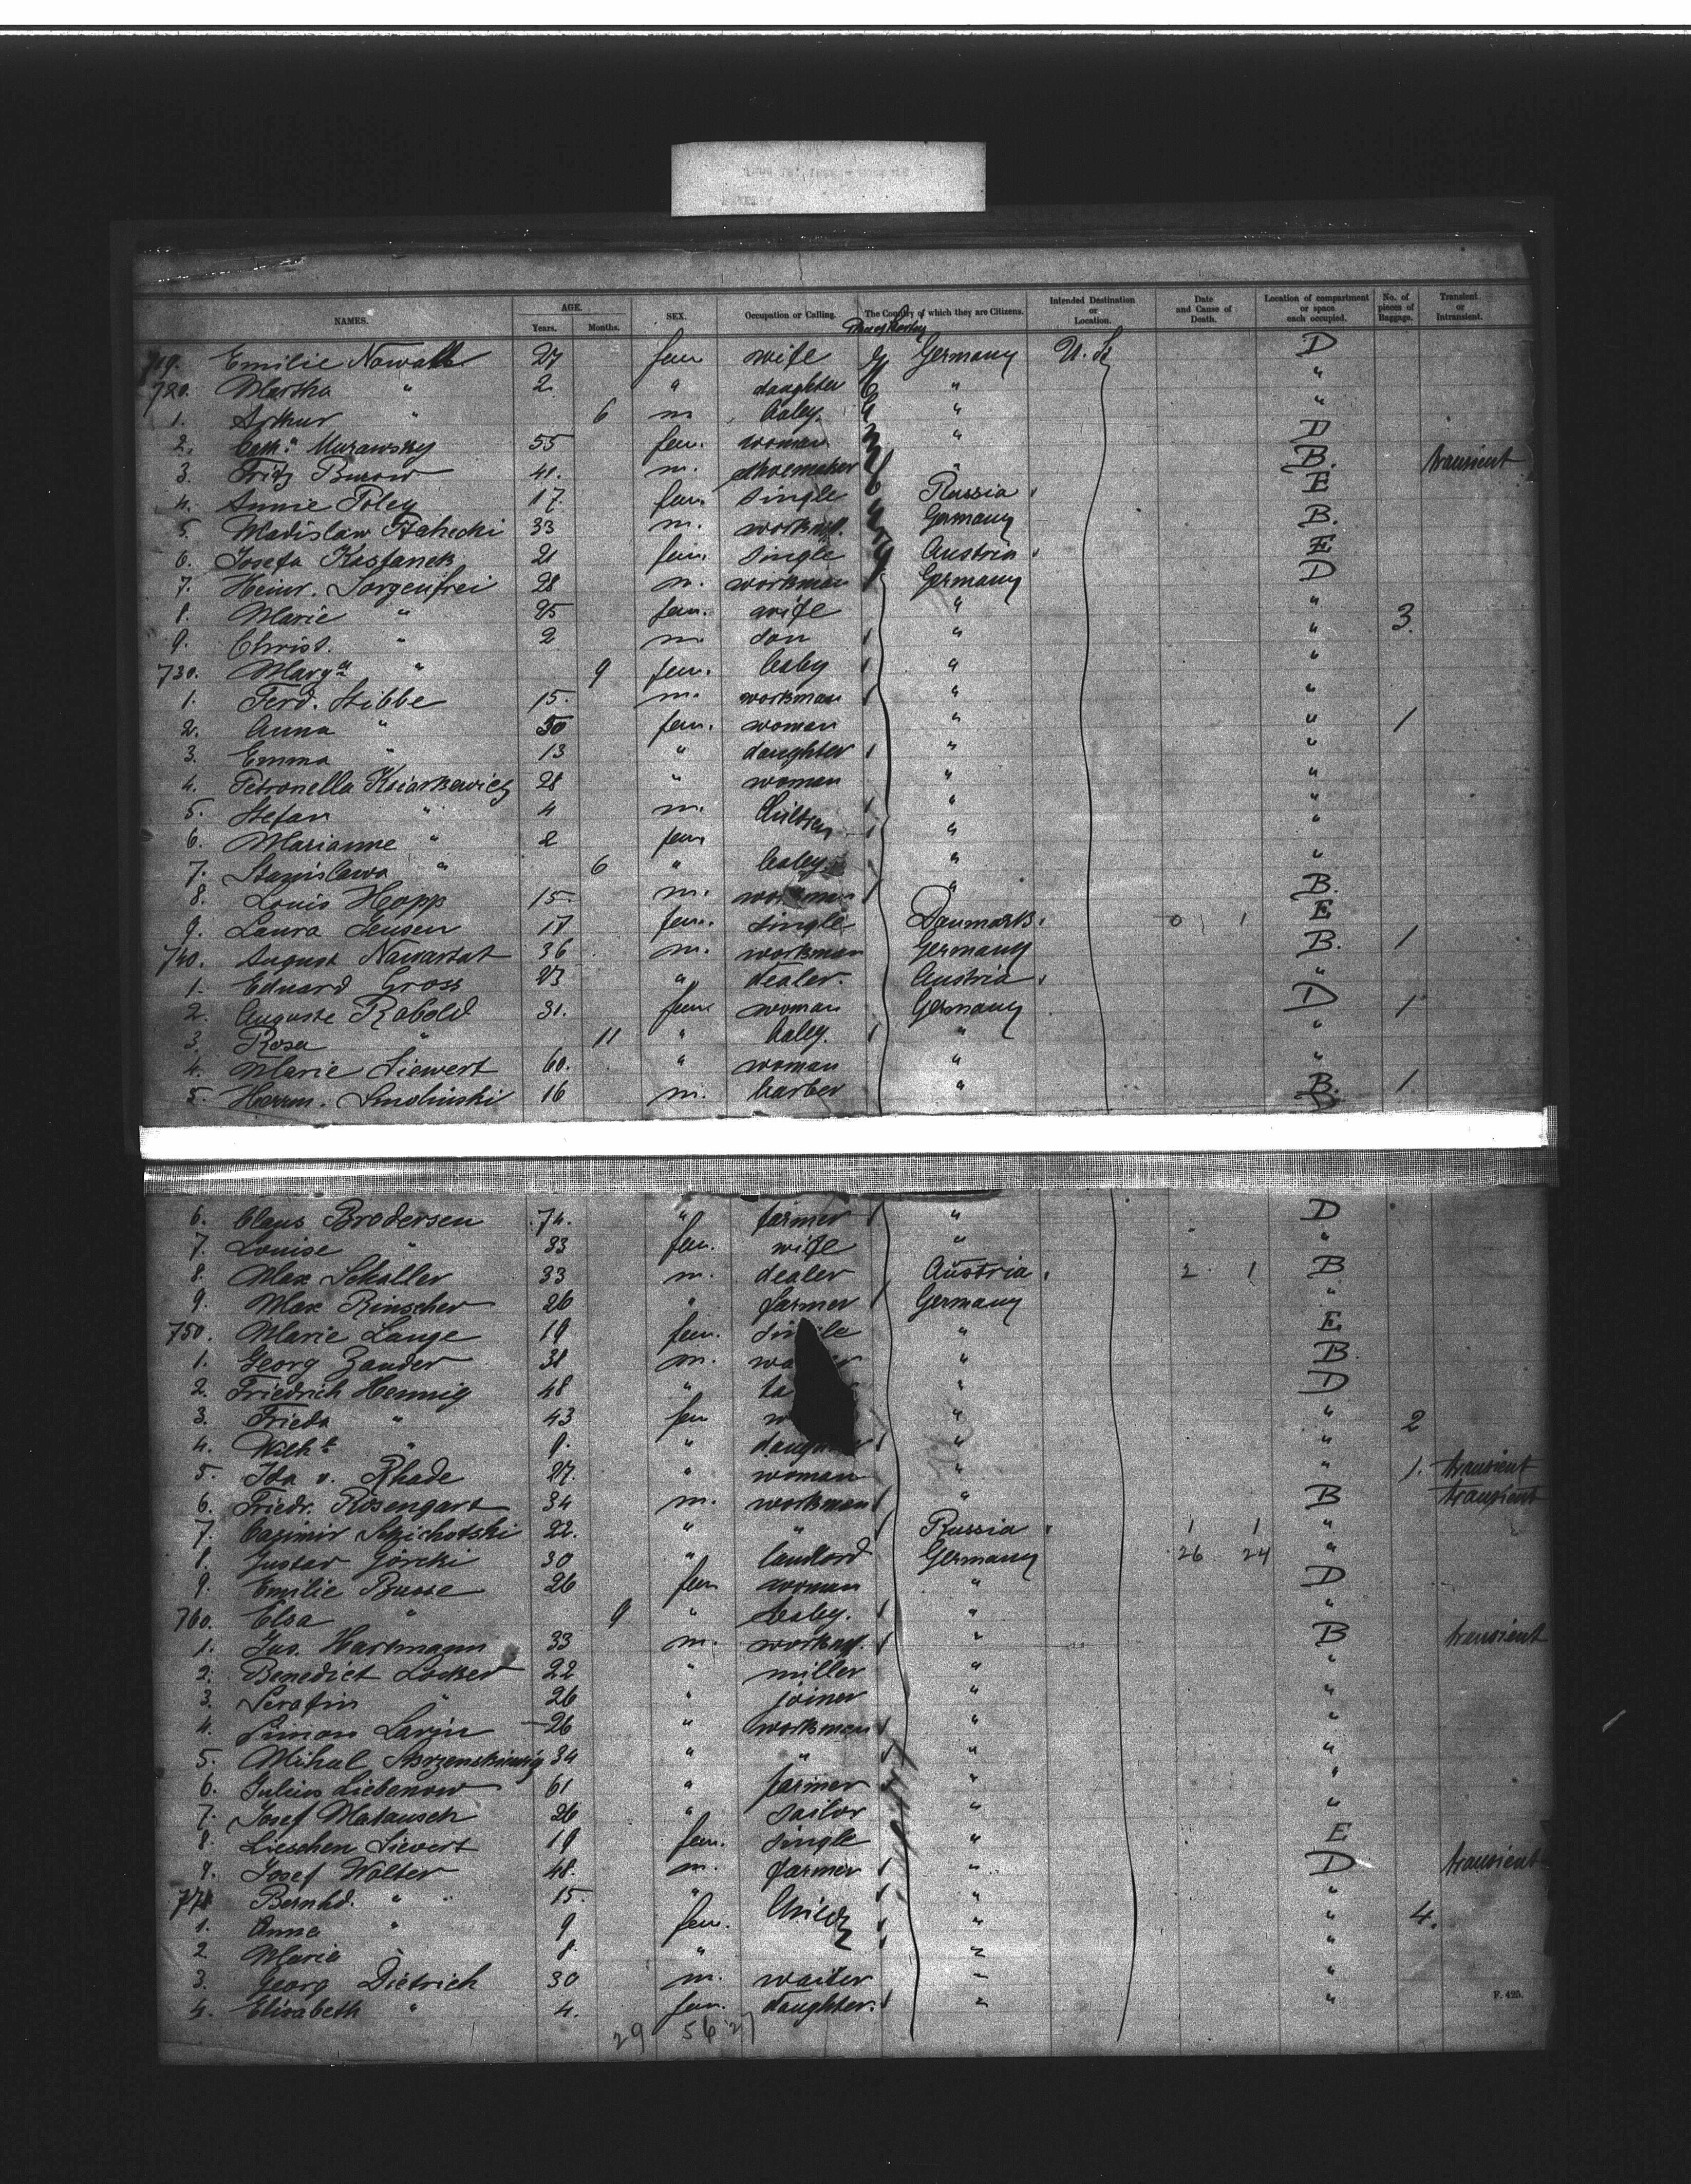 NAMES. AGE. Years. Months. SEX. Occupation or Calling. The Country of which they are Citizens. Intended Destination or Location. Date and Cause of Death. Location of compartment or space each occupied. No. of pieces of Baggage. Transient or Intransient.
719. Emilie Nowatk 27 fem wife Germany U. S. D
720. Martha " 2 " daughter " "
1. Arthur " 6 m baby. " "
2. Cath.a Murawsky 55 fem. woman " D
3. Fritz Burow 41. m. shoemaker " B. transient
4. Annie Foley 17. fem. single Russia E
5. Wladislaw 33 m. workm. Germany B.
6. Josefa Kastanek 21 fem. single Austria E
7. Heinr. Sorgenfrei 28 m. workman Germany D
8. Marie " 25 fem. wife " " 3.
9. Christ. " 2 m. son " "
730. Marg.a " 9 fem. baby " "
1. Ferd. Stibbe 15. m. workman " "
2. Anna " 50 fem. woman " " 1
3. Emma " 13 " daughter " "
4. Petronella 28 " woman " "
5. Stefan " 4 m. Children " "
6. Marianne " 2 fem " "
7. Stanislawa " 6 " baby " "
8. Louis Hopp 15. m. workman " B.
9. Laura Jensen 17 fem. single Danmark. 0 1 E
740. August Nawartat 36 m. workman Germany B. 1
1. Eduard Gross 23 " dealer. Austria "
2. Auguste Rabold 31. fem woman Germany D 1
3. Rosa " 11 " baby. " "
4. Marie Siewert 60. " woman " "
5. Herm. Smolinski 16 m. barber " B. 1
6. Claus Brodersen 74. " farmer " D
7. Louise " 33 fem. wife " "
8. Max Schaller 33 m. dealer Austria 2 1 B
9. Max Rinscher 26 " farmer Germany "
750. Marie Lange 19 fem. single " E
1. Georg Zander 38 m. " B.
2. Friedrich Hennig 48 " " D
3. Frieda " 43 fem " " 2
4. Wilh.e " 9. " daughter " "
5. Ida v. Rhade 27. " woman " " 1. transient
6. Friedr. Rosengart 34 m. workman " B transient
7. Casimir 22. " " Russia 1 1 "
8. Gustav Görcki 30 " landlord Germany 26 24 "
9. Emilie Busse 26 fem woman " D
760. Elsa " 9 " baby. " "
1. Jus. Hartmann 33 m. workm. " B transient
2. Benedict Locker 22 " miller " "
3. Serafin " 26 " joiner " "
4. Simon Lavin 26 " workman " "
5. Mihal 34 " " " "
6. Julius Liebenow 61 " farmer " "
7. Josef Matausch 26 " sailor " "
8. Lieschen Sievert 19 fem. single " E
9. Josef Walter 48. m. farmer " D transient
770 Bernhd. " 15. " "
1. Anna " 9 fem. Childr " " 4.
2 Maria " 8. " " "
3. Georg Dietrich 30 m. waiter " "
4. Elisabeth " 4. fem. daughter. " "
F. 420.
29 56 27